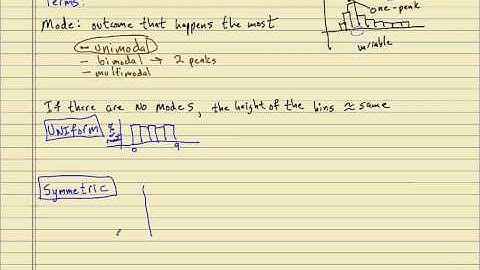 Terms:
one-peak
Mode: outcome that happens the most
variable
- unimodal
- bimodal → 2 peaks
- multimodal
If there are no modes, the height of the bins ≈ same
Uniform
0 9
Symmetric